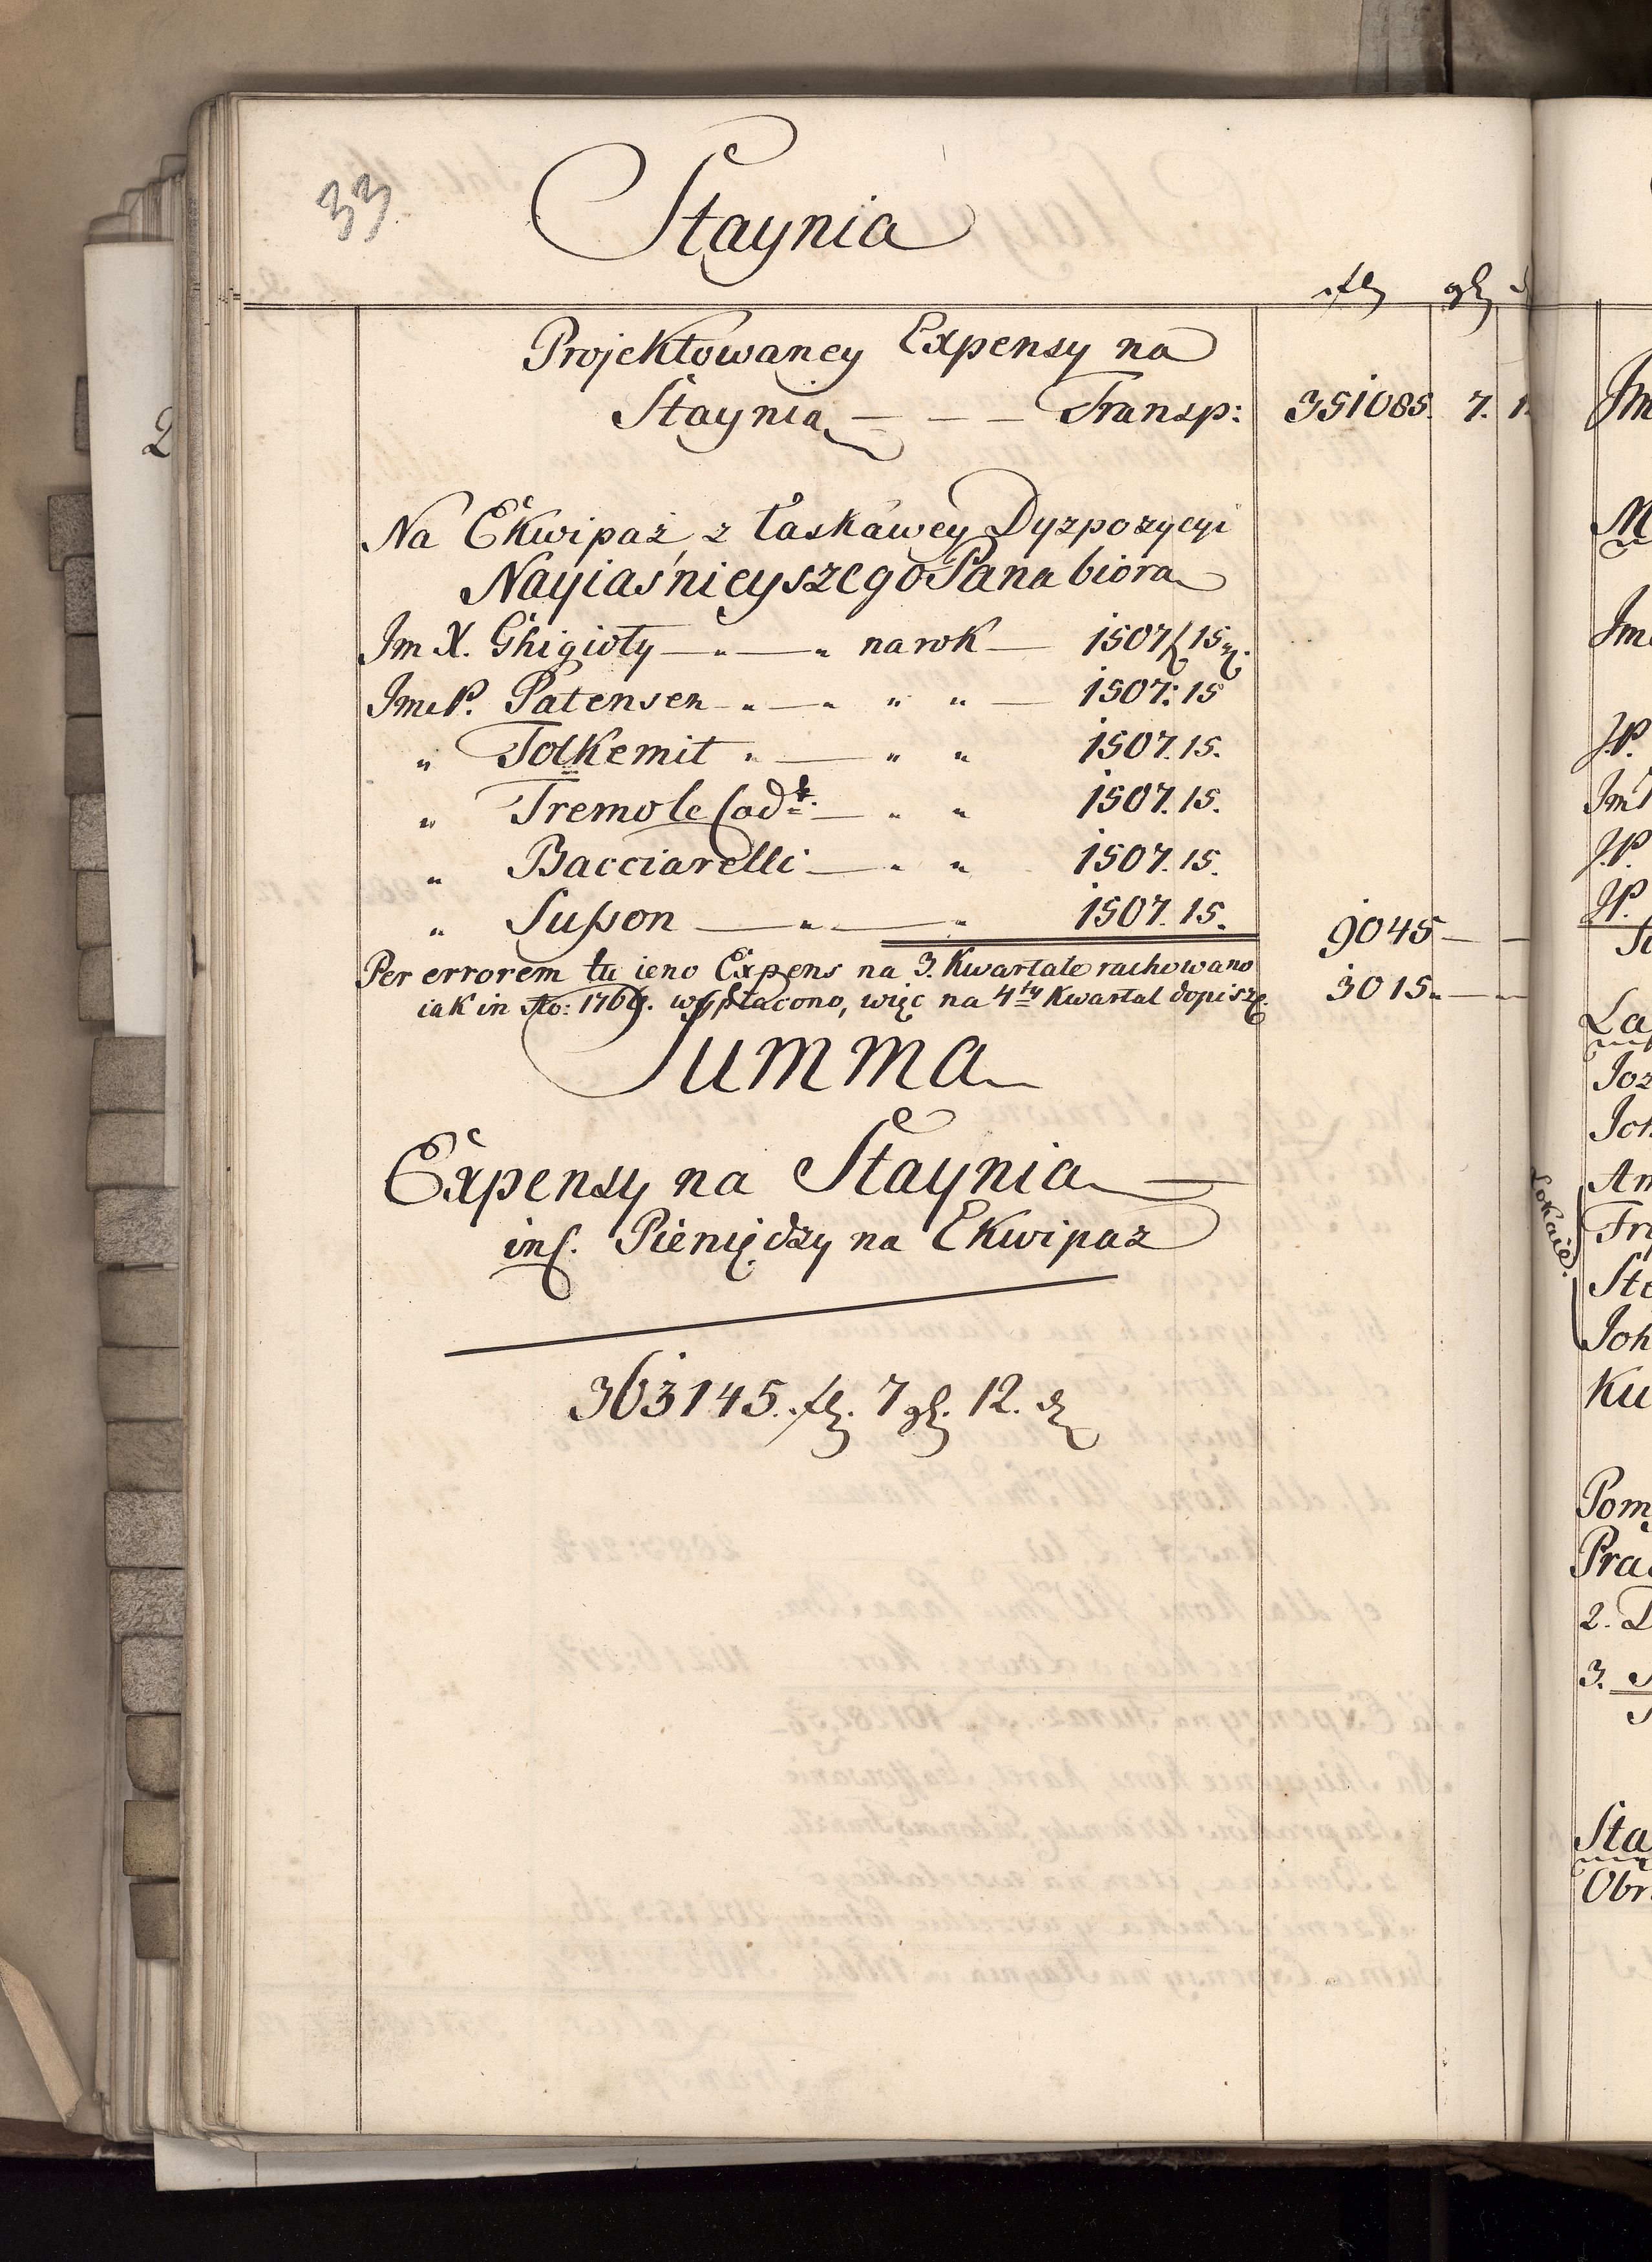 33.
Staynia
Projektowaney Expensy na
Staynia — — — Transp: 351085. 7. 1
Na Ekwipaż z łaskawey Dyzpozycyi
Nayiaśnieyszego Pana biora
Jm X. Ghigioty — " — " na rok — 1507 15
Jmć P. Patensen - " — " " " — 1507: 15
" Tolkemit " — " " 1507. 15.
" Tremo le Cadt — " " 1507. 15.
" Bacciarelli — " " 1507. 15.
" Susson — " — " 1507. 15. 9045 — —
Per errorem tu ieno Expens na 3. Kwartale rachowano
iak in Ao: 1769. wypłacono, więc na 4ty Kwartał dopisze 3015 " — "
Summa
Expensy na Staynia
inc. Pieniędzy na Ekwipaz
363145. fl. 7 gl. 12. d
2
Jm
M
Jm
J.P.
Jm
J.P.
JP.
La
Joz
Joh
An
Fra
Ste
Joh
Lokaie.
Ku
Pom
Pra
2.
3.
Sta
Obr